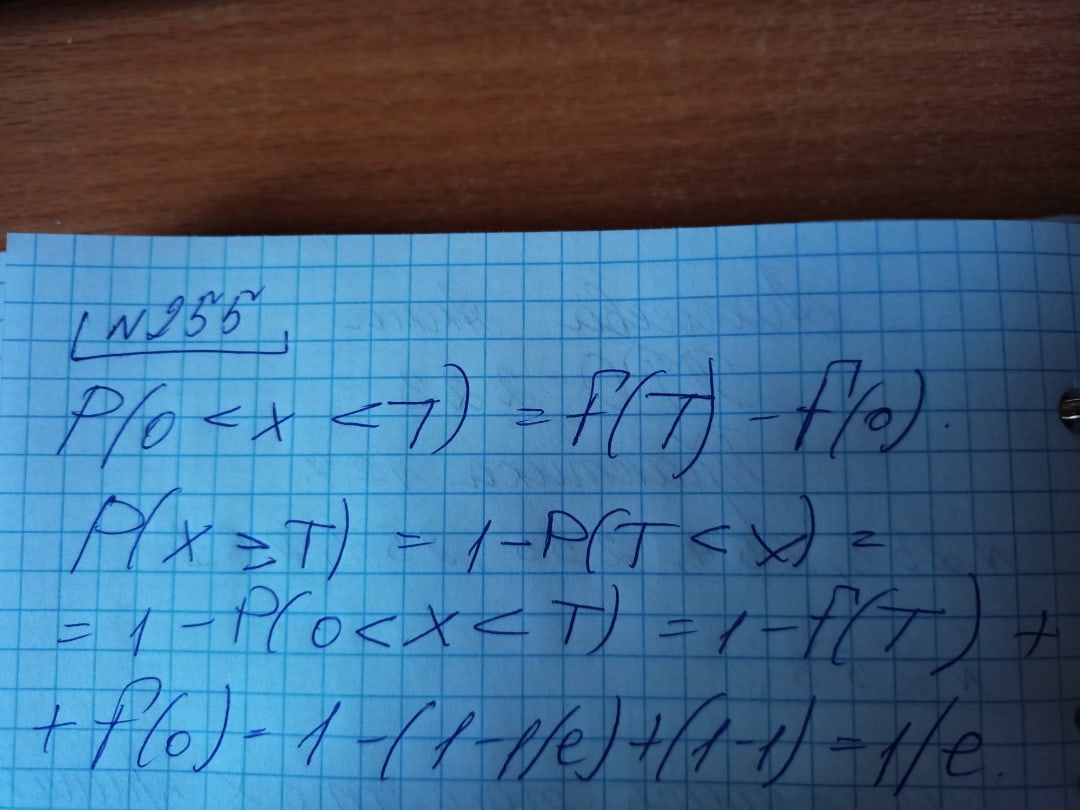 N255
P(0 < x < T) = F(T) - F(0).
P(x ≥ T) = 1 - P(T < x) =
= 1 - P(0 < x < T) = 1 - F(T) +
+ F(0) = 1 - (1 - 1/e) + (1 - 1) = 1/e.